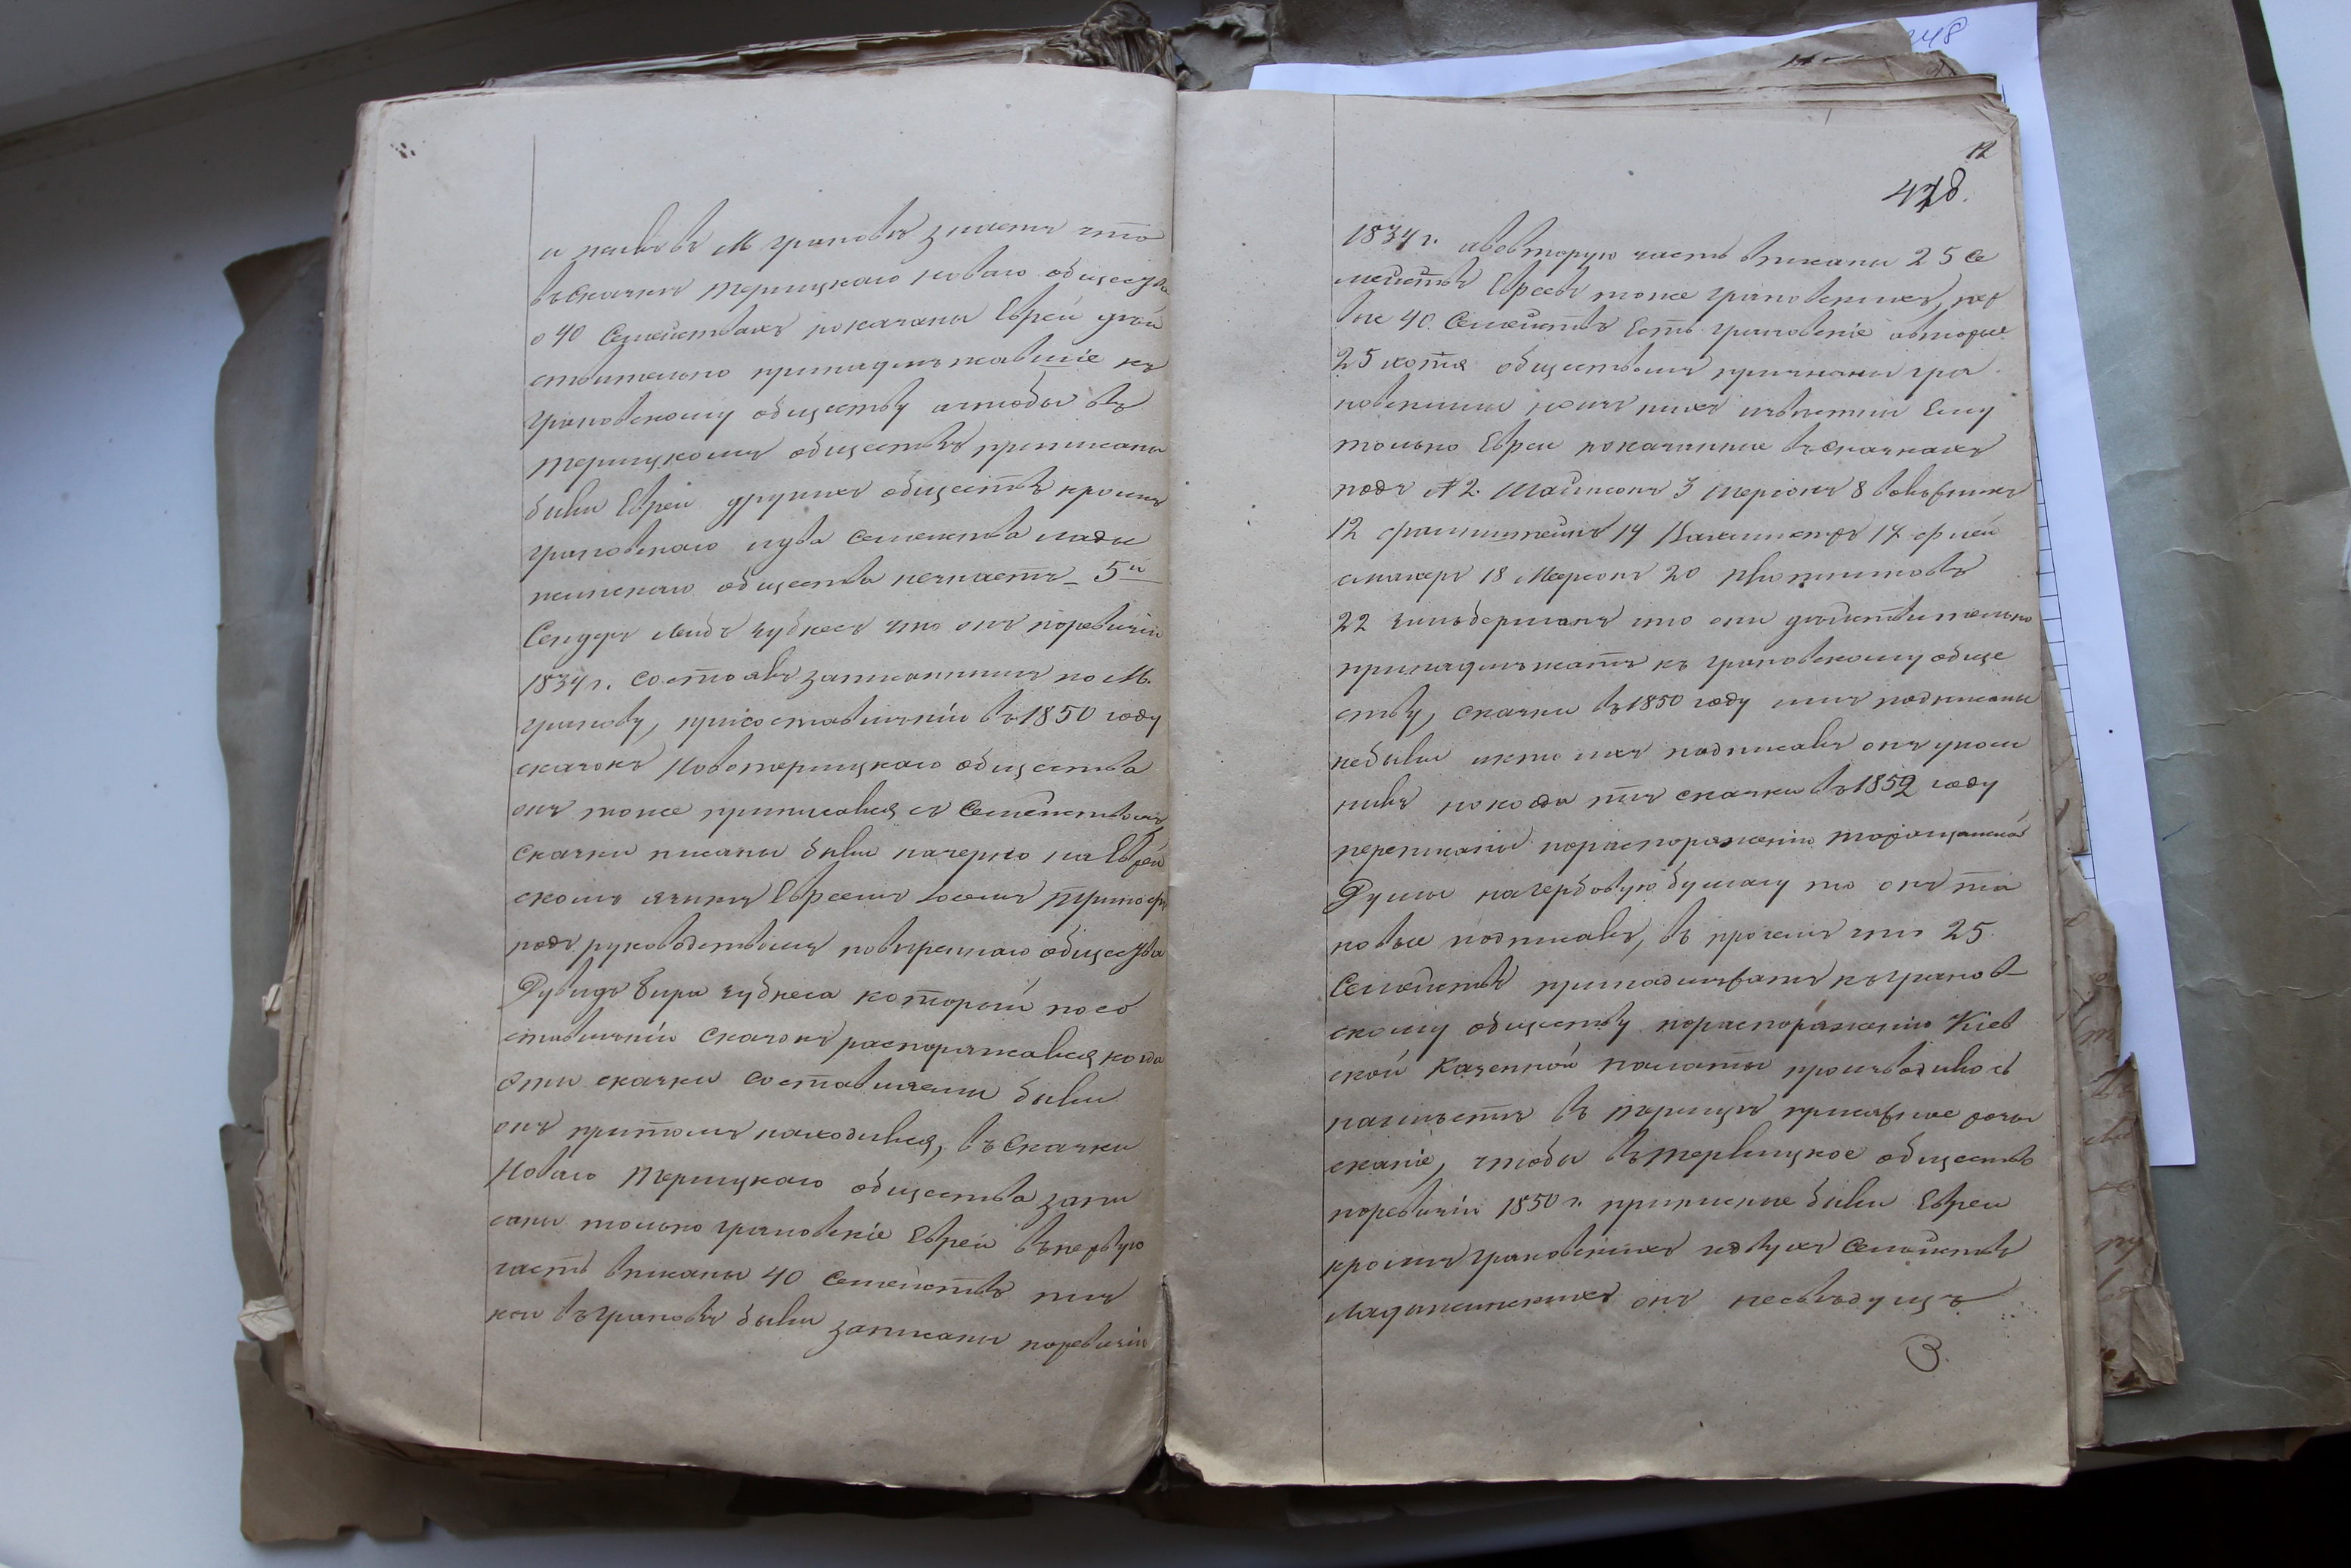 и живъ въ М Грановѣ знаетъ что
въ сказкѣ Терлицкаго новаго общества
о 40 Семействахъ показаны Евреи дѣй
ствительно принадлежавшіе къ
Грановскому обществу а чтобы въ
Терлицкомъ обществѣ приписаны
были Евреи другихъ обществъ кромѣ
Грановскаго и два Семейства Лады
жинскаго общества незнаетъ – 5й
Сендеръ Лейбъ Губкесъ что онъ по ревизіи
1834 г. состоялъ записаннымъ по М.
Гранову, при составленіи въ 1850 году
сказокъ Новотерлицкаго общества
онъ тоже приписался съ Семействомъ,
сказки писаны были начерно на Еврей
скомъ языкѣ Евреемъ
подъ руководствомъ повѣреннаго общества
Дувидъ Бера Губкеса который по со
ставленіи сказокъ распоряжался когда
эти сказки составляемы были
онъ при томъ находился, въ сказки
Новаго Терлицкаго общества запи
саны только Грановскіе Евреи въ первую
часть вписаны 40 Семействъ тѣ
кои въ Грановѣ были записаны по ревизіи
12
428.
1834 г. а во вторую часть вписаны 25 Се
мействъ Евреевъ тоже Грановскихъ, пер
вые 40 Семействъ есть Грановскіе а вторые
25 хотя обществомъ признаны Гра
новскими но изъ нихъ извѣстны Ему
только Евреи показанные въ сказкахъ
подъ № 2. 3 8
12 14 17
18 20
22 Зильберманъ что они дѣйствительно
принадлежатъ къ Грановскому обще
ству, сказки въ 1850 году имъ подписаны
небыли и кто ихъ подписалъ онъ упом
нилъ но когда тѣ сказки въ 1852 году
переписаны по распоряженію Таращанской
Думы на гербовую бумагу то онъ та
ковые подписалъ, въ прочемъ что 25
Семействъ принадлежатъ къ Гранов
скому обществу по распоряженію Кіев
ской Казенной палаты производилось
на мѣстѣ въ Терлицѣ розы
сканіе, чтобы въ Терлицкое общество
по ревизіи 1850 г. приписные были Евреи
кромѣ Грановскихъ и двухъ Семействъ
Ладыжинскихъ онъ несвѣдущъ